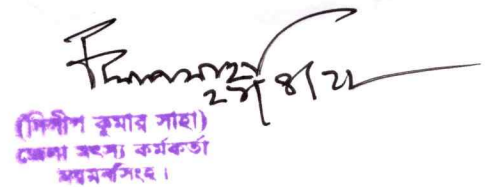 ২৭/৪/২২
(দিলীপ কুমার সাহা)
জেলা মৎস্য কর্মকর্তা
ময়মনসিংহ।